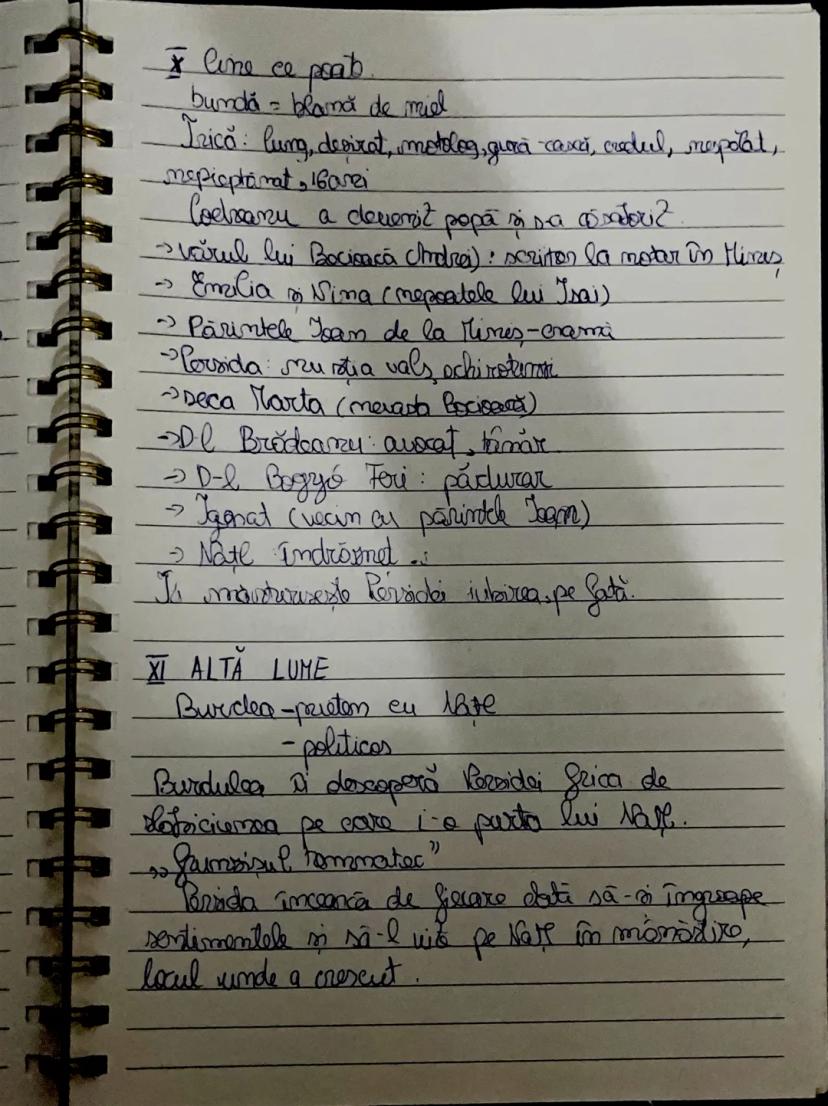 X Cine ce poate
bundă = blană de miel
Trică: lung, deșirat, motolog, gură-cască, credul, nespălat,
nepieptănat, 16 ani
Codreanu a devenit popă și s-a căsătorit
→ vărul lui Bocioacă (Andrei): scriitor la notar în Mines
→ Emilia și Sima (nepoatele lui Isai)
→ Părintele Ioan de la Miniș-
→ Persida: nu știa vals, ochi
→ Deca Marta (nevasta Bocioacă)
→ D-l Brădeanu: avocat, tânăr
→ D-l Bogyó Feri: pădurar
→ Ignat (vecin cu părintele Ioan)
→ Națl îndrăsnet
Îi mărturisește Persidei iubirea, pe față.
XI ALTĂ LUME
Burdea - prieten cu Națl
- politicos
Burdulea îi descoperă Persidei frica de
slăbiciunea pe care i-o purta lui Națl.
Persida încearcă de fiecare dată să-și îngroape
sentimentele și să-l uite pe Națl în mănăstire,
locul unde a crescut.